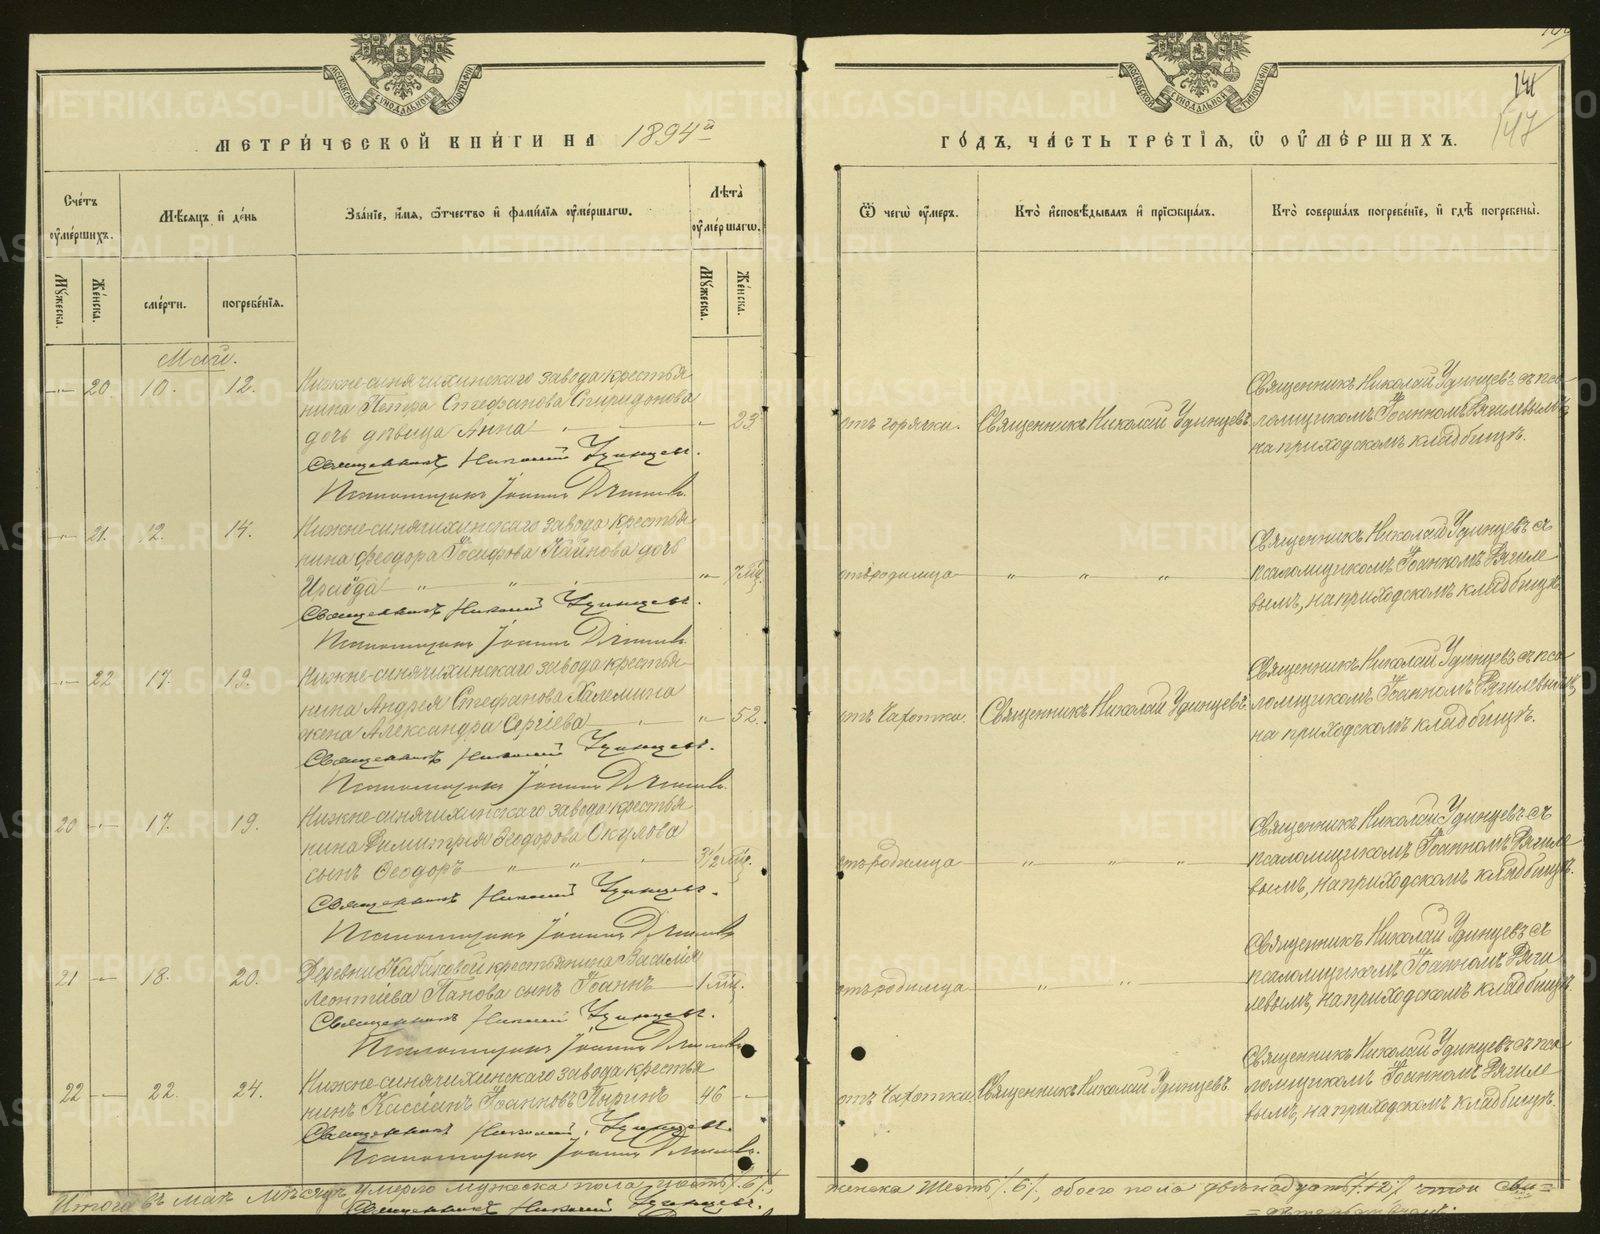 МЕТРИ́ЧЕСКОЙ КНИ́ГИ НА 1894й
Счётъ оумéршихъ.
Мѣсяцъ и дéнь
Звáнїе, и́мя, ѻ҆́тчество и фами́лїя оумéршагѡ.
Лѣта оумéршагѡ.
Мꙋжеска.
Жéнска.
смéрти.
погребéнїя.
Мꙋжеска.
Жéнска.
Май.
—"— 20 10. 12. Нижне-синячихинскаго завода крестья
нина Петра Стефанова Спиридонова
дочь дѣвица Анна — " — " 23
Священникъ Николай Удинцевъ.
Псаломщикъ Іоаннъ
—"— 21. 12. 14. Нижне-синячихинскаго завода крестья
нина Феодора Іосифова Кайнова дочь
— " — " — " 7 мц.
Священникъ Николай Удинцевъ.
Псаломщикъ Іоаннъ
—"— 22 17. 19. Нижне-синячихинскаго завода крестья
нина Андрея Стефанова Халемина
жена Александра Сергіева — " — " 52.
Священникъ Николай Удинцевъ.
Псаломщикъ Іоаннъ
20 —"— 17. 19. Нижне-синячихинскаго завода крестья
нина Димитрія Феодорова Окулова
сынъ Феодоръ — " — " — 3½ мц.
Священникъ Николай Удинцевъ.
Псаломщикъ Іоаннъ
21 — 18. 20. Деревни Кабаковой крестьянина Василія
Леонтіева Панова сынъ Іоаннъ — 1 мц.
Священникъ Николай Удинцевъ.
Псаломщикъ Іоаннъ
22 — 22. 24. Нижне-синячихинскаго завода крестья
нинъ Кассіанъ Іоанновъ Пыринъ 46 —
Священникъ Николай Удинцевъ.
Псаломщикъ Іоаннъ
Итого въ маѣ мѣсяцѣ умерло мужеска пола шесть /6/,
Священникъ Николай Удинцевъ.
147
ГО́ДЪ, ЧА́СТЬ ТРЕ́ТЇЯ, Ѡ ОУМЕ́РШИХЪ.
Ѿ чегѡ оу́меръ.
Ктò исповѣ́дывалъ и прїѡбща́лъ.
Ктò соверша́лъ погребéнїе, и гдѣ̀ погребены̀.
отъ горячки. Священникъ Николай Удинцевъ.
Священникъ Николай Удинцевъ съ пса-
ломщикомъ Іоанномъ Рягилевымъ,
на приходскомъ кладбищѣ.
отъ родимца — " — " — " —
Священникъ Николай Удинцевъ съ
псаломщикомъ Іоанномъ Рягиле
вымъ, на приходскомъ кладбищѣ.
отъ чахотки. Священникъ Николай Удинцевъ.
Священникъ Николай Удинцевъ съ пса
ломщикомъ Іоанномъ Рягилевымъ,
на приходскомъ кладбищѣ.
отъ родимца — " — " — " —
Священникъ Николай Удинцевъ съ
псаломщикомъ Іоанномъ Рягиле
вымъ, на приходскомъ кладбищѣ.
отъ родимца — " — " —
Священникъ Николай Удинцевъ съ
псаломщикомъ Іоанномъ Ряги
левымъ, на приходскомъ кладбищѣ.
отъ чахотки. Священникъ Николай Удинцевъ.
Священникъ Николай Удинцевъ съ пса
ломщикомъ Іоанномъ Рягиле
вымъ, на приходскомъ кладбищѣ.
женска шесть /6/, обоего пола двѣнадцать /12/, въ чемъ сви=
=дѣтельствуемъ.
METRIKI.GASO-URAL.RU